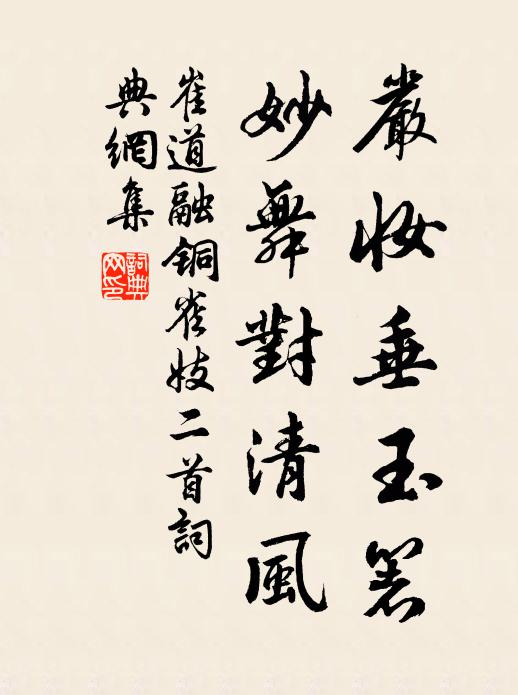 嚴妆垂玉箸
妙舞對清風
崔道融銅雀妓二首詞
典網集
詞典
网印